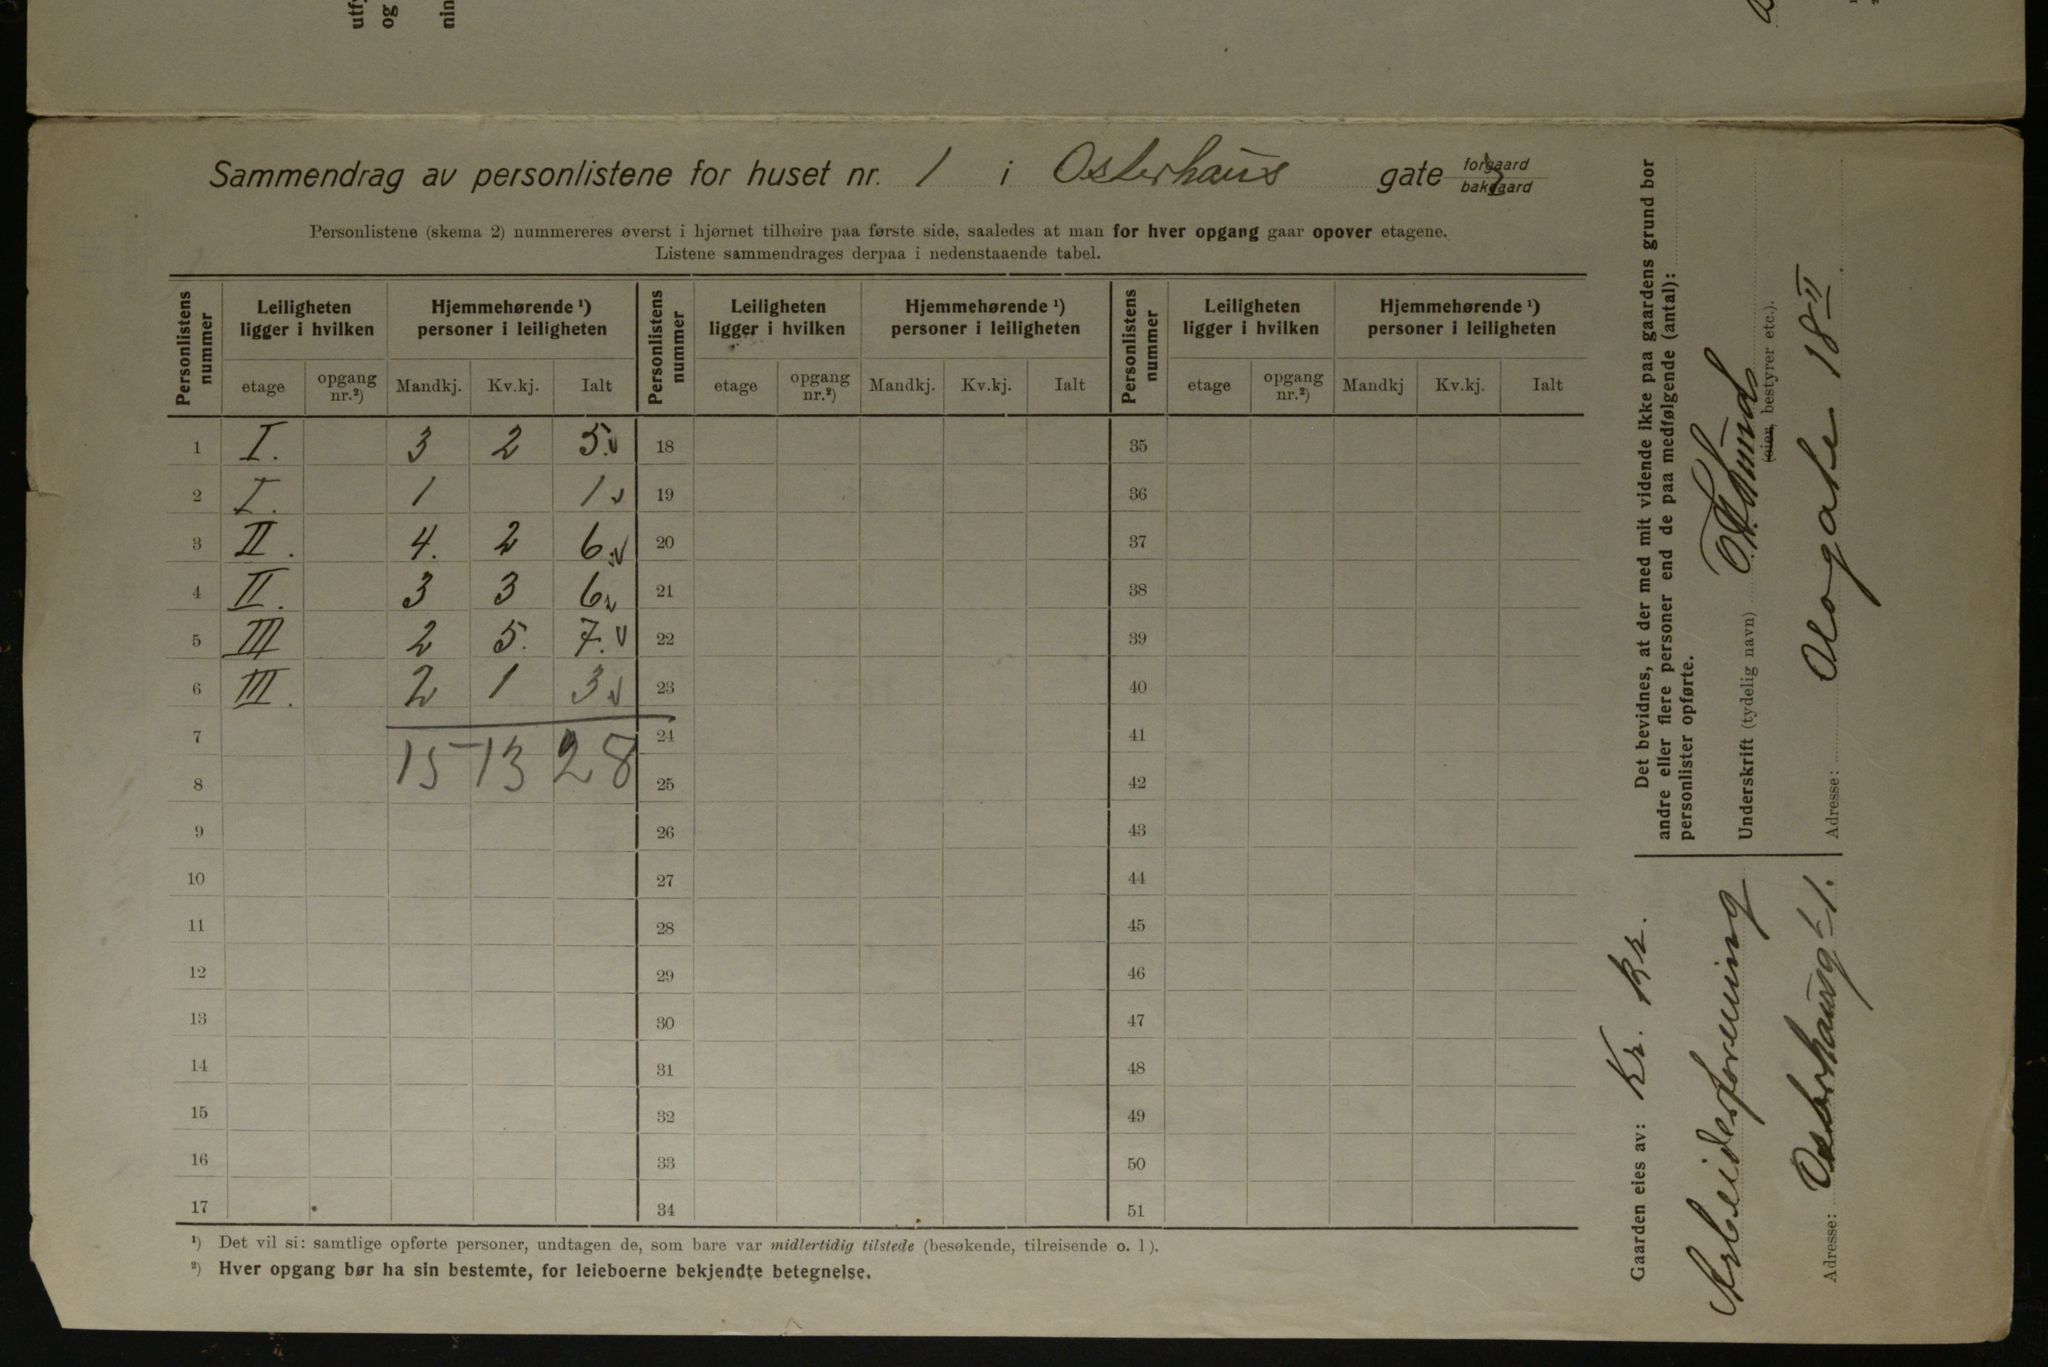 Sammendrag av personlistene for huset nr. 1 i Osterhaus gate forgaard bakgaard
Personlistene (skema 2) nummereres øverst i hjørnet tilhøire paa første side, saaledes at man for hver opgang gaar opover etagene.
Listene sammendrages derpaa i nedenstaaende tabel.
Personlistens nummer Leiligheten ligger i hvilken Hjemmehørende ¹) personer i leiligheten Personlistens nummer Leiligheten ligger i hvilken Hjemmehørende ¹) personer i leiligheten Personlistens nummer Leiligheten ligger i hvilken Hjemmehørende ¹) personer i leiligheten
etage opgang nr.²) Mandkj. Kv.kj. Ialt etage opgang nr.²) Mandkj. Kv.kj. Ialt etage opgang nr.²) Mandkj Kv.kj. Ialt
1 I. 3 2 5. 18 35
2 I. 1 1 19 36
3 II. 4. 2 6. 20 37
4 II. 3 3 6 21 38
5 III 2 5. 7. 22 39
6 III. 2 1 3 23 40
7 24 41
15 13 28
8 25 42
9 26 43
10 27 44
11 28 45
12 29 46
13 30 47
14 31 48
15 32 49
16 33 50
17 34 51
¹) Det vil si: samtlige opførte personer, undtagen de, som bare var midlertidig tilstede (besøkende, tilreisende o. l).
²) Hver opgang bør ha sin bestemte, for leieboerne bekjendte betegnelse.
Gaarden eies av: Kr. Kr.
Arbeidesforening
Adresse: Osterhausgt 1.
Det bevidnes, at der med mit vidende ikke paa gaardens grund bor
andre eller flere personer end de paa medfølgende (antal):
personlister opførte.
Underskrift (tydelig navn)
(eier, bestyrer etc.).
Adresse: 18 II
utfy
og
nin